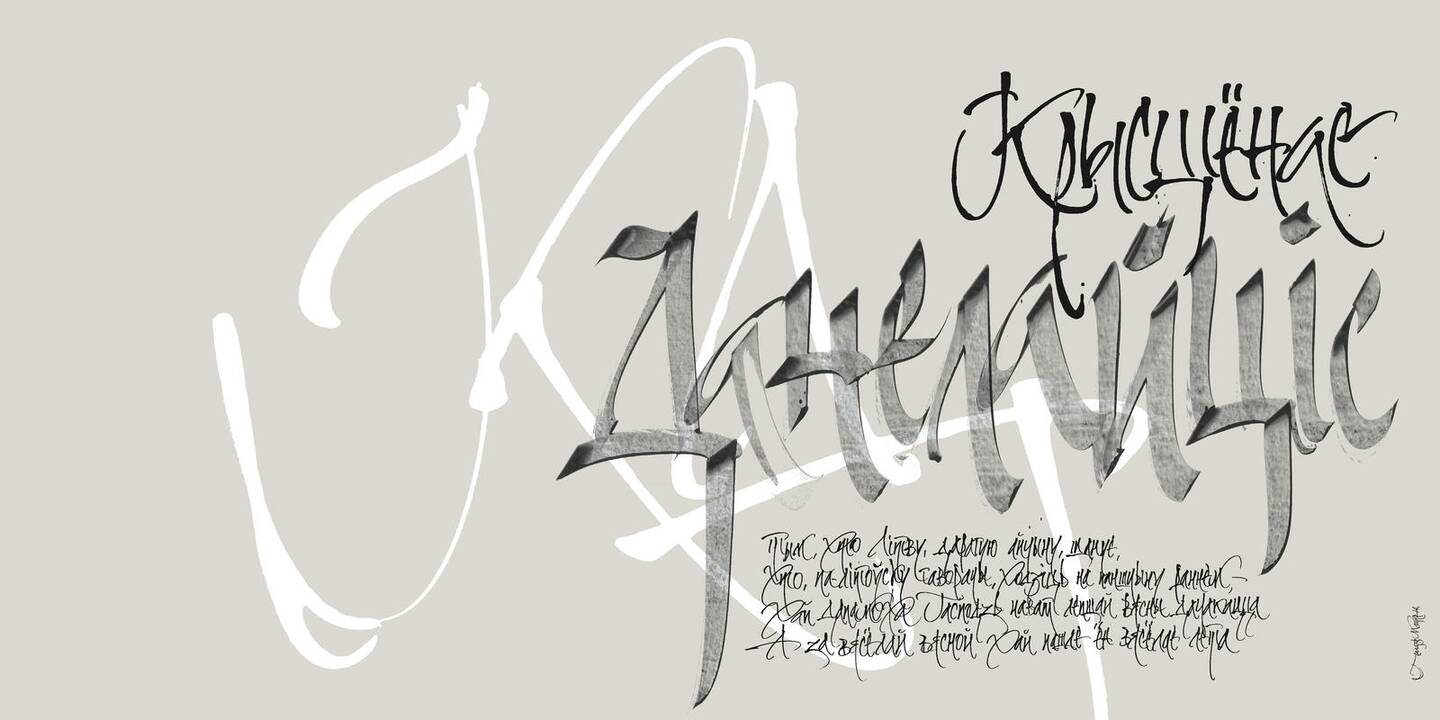 КД
Крысцёнас
Данелайціс
Тым, хто Літву, дарагую айчыну, шануе,
Хто, па-літоўску гаворачы, ходзіць на паншчыну раннем, –
Хай дапаможа Гасподзь нават лепшай вясны дачакацца
А за вясёлай вясной хай пашле ён вясёлае лета